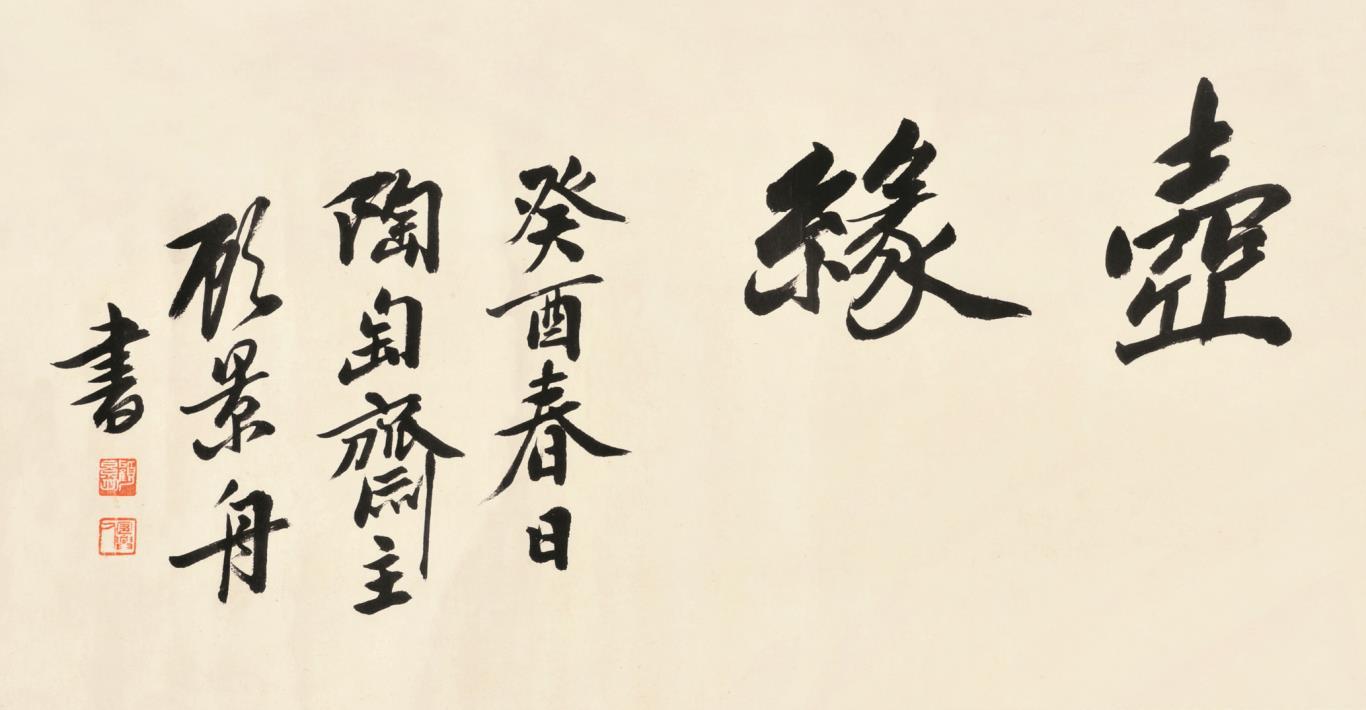 壺緣
癸酉春日
陶匋齋主
顧景舟
書